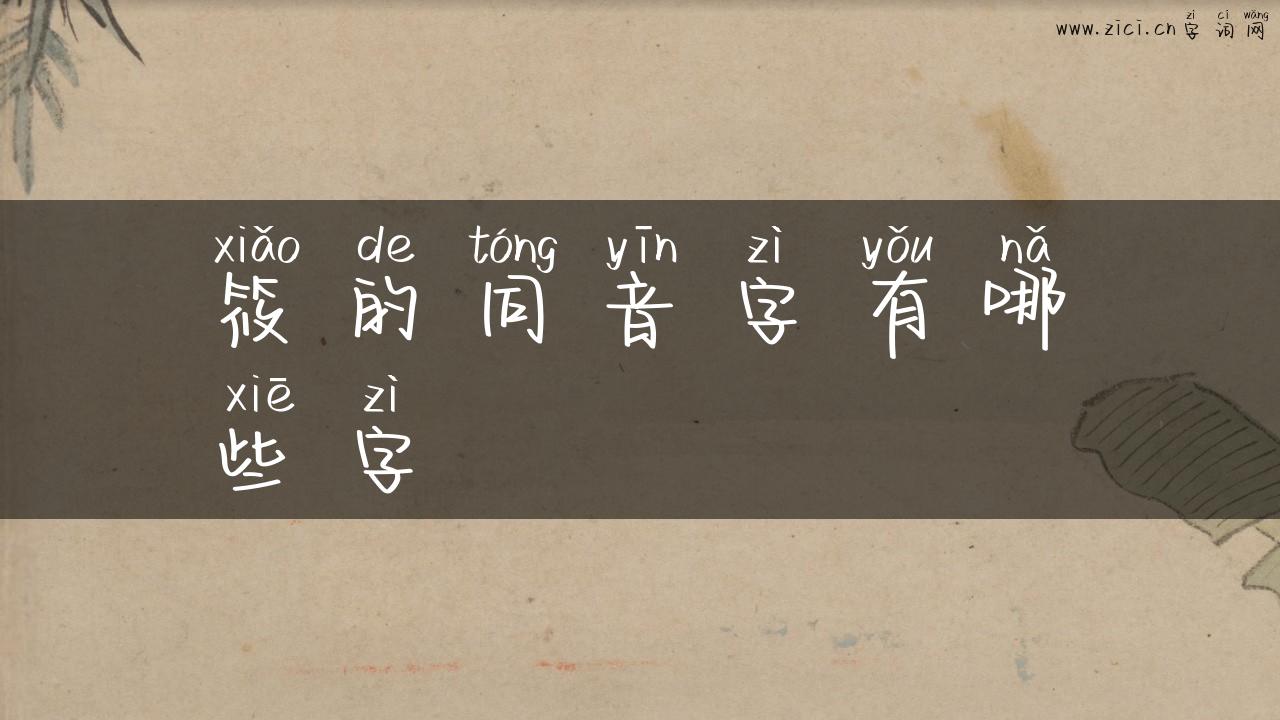 zì cí wǎng
www.zici.cn 字 词 网
xiǎo de tóng yīn zì yǒu nǎ
筱 的 同 音 字 有 哪
xiē zì
些 字